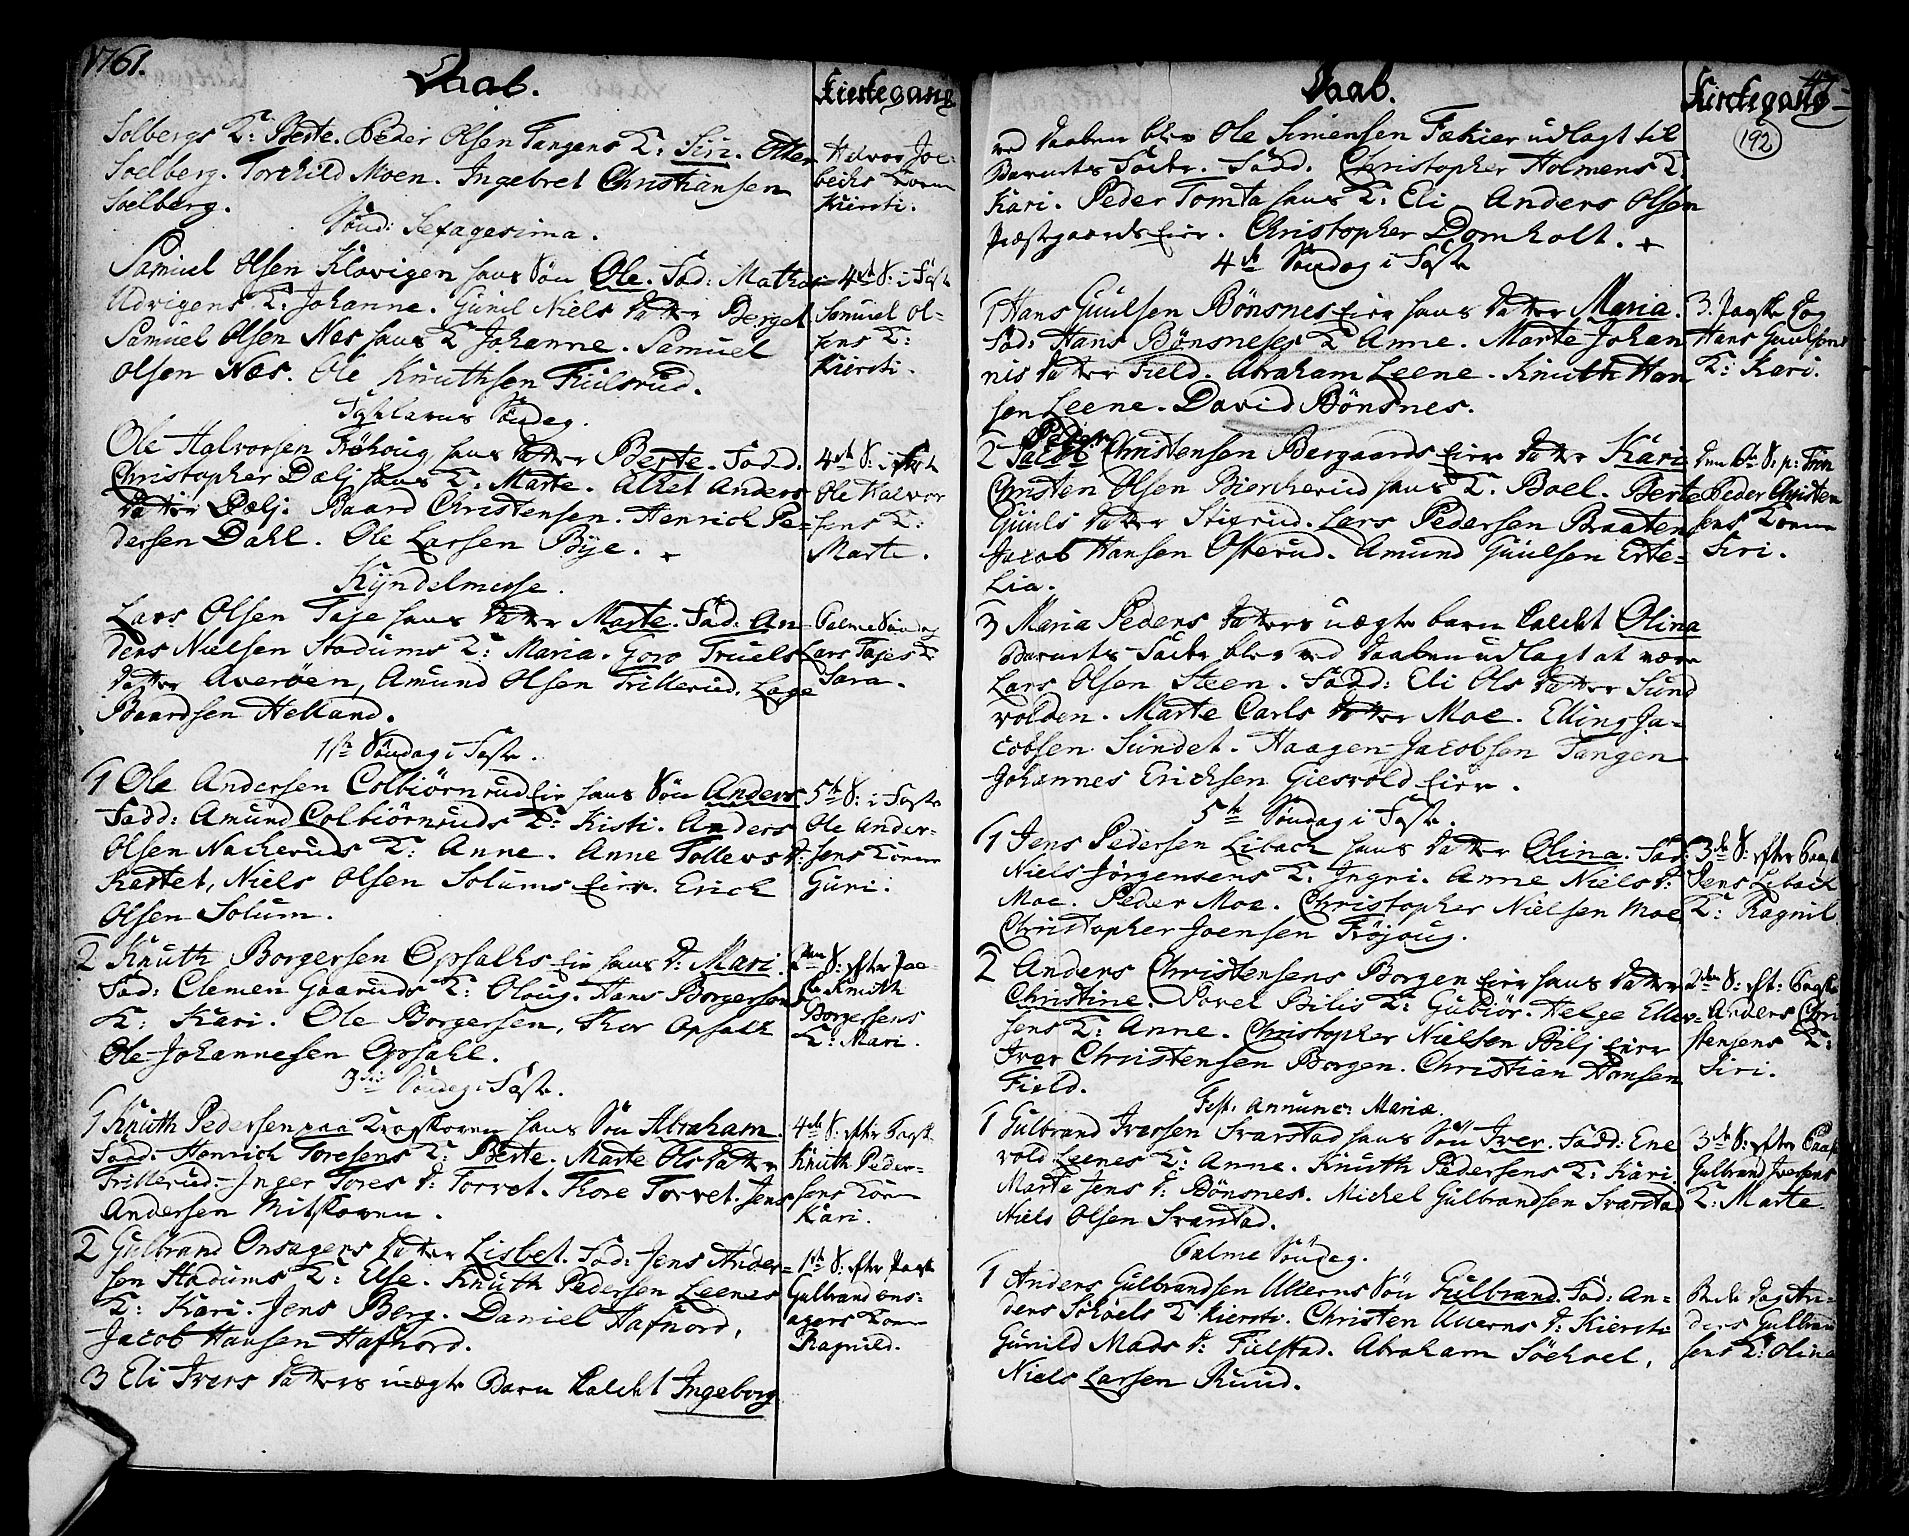 1761.
Daab.
Kirkegang
Solbergs K: Berte. Peder Olsen Tangens K: Siri. Otter
Soelberg. Torchild Moen. Ingebret Christiansen
Soelberg.
Halvor Joe-
bechs Kone
Kiersti.
Sönd: Sexagesima.
Samuel Olsen Klövigen hans Sön Ole. Fad: Mathias
Udvigens K: Johanne. Gunil Niels Datter Berget
Samuel Olsen Næs hans K Johanne. Samuel
Olsen Næs. Ole Knuthsen Fiulsrud.
4de S: i Faste
Samuel Ol-
sens K:
Kiersti.
Fastelavns Söndag.
Ole Halvorsen Fröhoug hans Datter Berte. Fadd.
Christopher Dælj hans K: Marte. Alhet Anders
Datter Dælj. Baard Christensen. Henrich Pe-
dersen Dahl. Ole Larsen Bye.
4de S: i Faste
Ole Halvor
sens K:
Marte.
Kyndelmesse.
Lars Olsen Taje hans Datter Marte. Fad: An-
ders Nielsen Stadums K: Maria. Goro Truels
Datter Averöen, Amund Olsen Trillerud, Lage
Baardsen Helland.
Palme Söndag
Lars Tajes K
Sara.
1ste Söndag i Faste.
1 Ole Andersen Colbiörnrud Eie hans Sön Anders
Fadd: Amund Colbiörnruds K: Kisti. Anders
Olsen Nacheruds K: Anne. Anne Tollevs D:
Kestet, Niels Olsen Solums Eie. Erich
Olsen Solum.
5te S: i Faste
Ole Ander-
sens Kone
Guri.
2 Knuth Borgersen Opsahls Eie hans D: Mari
Fad: Clemen Gaaruds K: Oloug. Hans Borgersens
K: Kari. Ole Borgersen, Thor Opsahl
Ole Johannesen Opsahl.
2den S: efter Paa-
ske Knuth
Borgersens
K: Mari.
3die Söndag i Faste.
1 Knuth Pedersen paa Krogskoven hans Sön Abraham.
Fadd: Henrich Toresens K: Berte. Marte Ols Datter
Trillerud. Inger Tores D: Torvet. Thore Torvet. Jens
Andersen Mitskoven.
4de S: efter Paaske
Knuth Peder-
sens Kone
Kari.
2 Gulbrand Onsagers Datter Lisbet. Fad: Jens Ander-
sen Stadums K: Else. Knuth Pedersen Leenes
K: Kari. Jens Berg. Daniel Hafnord,
Jacob Hansen Hafnord.
1ste S: efter Paaske
Gulbrand ons-
agers Kone
Ragnild.
3 Eli Ivers Datters uægte Barn kaldet Ingeborg
Daab.
Kirkegang
192
ved Daaben blev Ole Simensen Fækier udlagt til
Barnets Fader. Fadd. Christopher Holmens K:
Kari. Peder Tomta hans K: Eli Anders Olsen
Præstgaards Eier. Christopher Domholt.
4de Söndag i Faste
1 Hans Guulsen Bönsnes Eier hans Datter Maria.
Fad: Hans Bönsneses K Anne. Marte Johan
nis Datter Field. Abraham Leene. Knuth Han
sen Leene. David Bönsnes.
3. Paaske Dag
Hans Guulsens
K: Kari.
2 Peder Christensen Bergaards Eier Datter Kari
Christen Olsen Biercherud hans K. Boel. Berte
Guuls Datter Stigrud. Lars Pedersen Braaten
Jacob Hansen Osterud. Amund Guulsen Erte-
Lia.
Peder Christen
sens Kone
Siri.
3 Maria Peders Datters uægte barn kaldet Olina
Barnets Fader blev ved Daaben udlagt at være
Lars Olsen Steen. Fadd: Eli Ols Datter Sund
volden. Marte Carls Datter Moe. Elling Ja-
cobsen Sundet. Haagen Jacobsen Tangen
Johannes Erichsen Giesvold Eier.
5te Söndag i Faste.
1 Jens Pedersen Libach hans Datter Olina. Fad:
Niels Jörgensens K: Ingri. Anne Niels D:
Moe. Peder Moe. Christopher Nielsen Moe
Christopher Joensen Fröjoug.
3de S: efter Paaske
Jens Libach
K: Ragnil
2 Anders Christensens Borgen Eier hans Datter
Christine. Povel Bilis K: Gubiör. Helge Eller-
sens K: Anne. Christopher Nielsen Bilj Eier
Iver Christensen Borgen. Christian Hansen
Field.
2den S: eft: Paaske
Anders Chri
stensens K:
Siri.
Fest. annunc: Mariæ.
1 Gulbrand Iversen Svarstad hans Sön Iver. Fadd: Ene
vold Leenes K: Anne. Knuth Pedersens K: Kari.
Marte Jens D: Bönsnes. Michel Gulbrandsen Svarstad
Niels Olsen Svarstad.
3de S: efter Paaske
Gulbrand Iversens
K: Marte.
Palme Söndag.
1 Anders Gulbrandsen Ullerns Sön Gulbrand. Fad: An-
ders Sohoels K Kiersti. Christen Ullerns D: Kiersti
Gunild Mads D: Fielstad. Abraham Söehoel,
Niels Larsen Ruud.
Bede Dag An-
ders Gulbrand
sens K: Olina